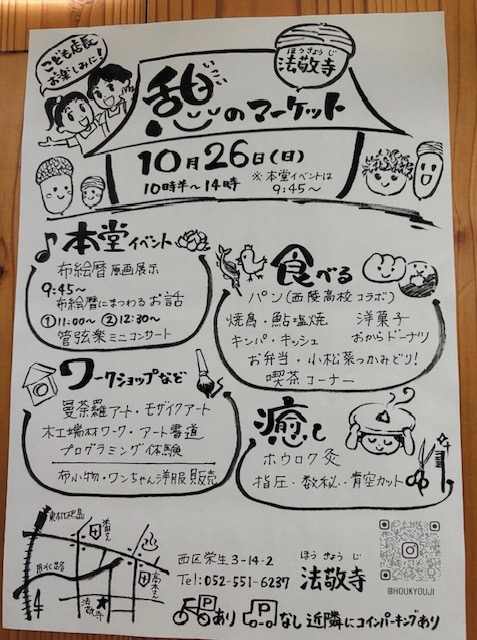 こども店長
お楽しみに!
いこい
憩のマーケット
ほうきょうじ
法敬寺
10月26日(日)
10時半〜14時
※本堂イベントは
9:45〜
本堂イベント
布絵暦 原画展示
9:45〜
布絵暦にまつわるお話
①11:00〜 ②12:30〜
管弦楽ミニコンサート
食べる
パン(西陵高校コラボ)
焼鳥・鮎塩焼 洋菓子
キンパ・キッシュ おからドーナツ
お弁当・小松菜つかみどり!
喫茶コーナー
ワークショップなど
曼荼羅アート・モザイクアート
木工端材ワーク・アート書道
プログラミング体験
布小物・ワンちゃん洋服販売
癒し
ホウロク灸
指圧・数秘・青空カット
法敬寺
西区栄生3-14-2
Tel:052-551-6237
ほうきょうじ
法敬寺
@HOUKYOUJI
Pあり Pなし 近隣にコインパーキングあり